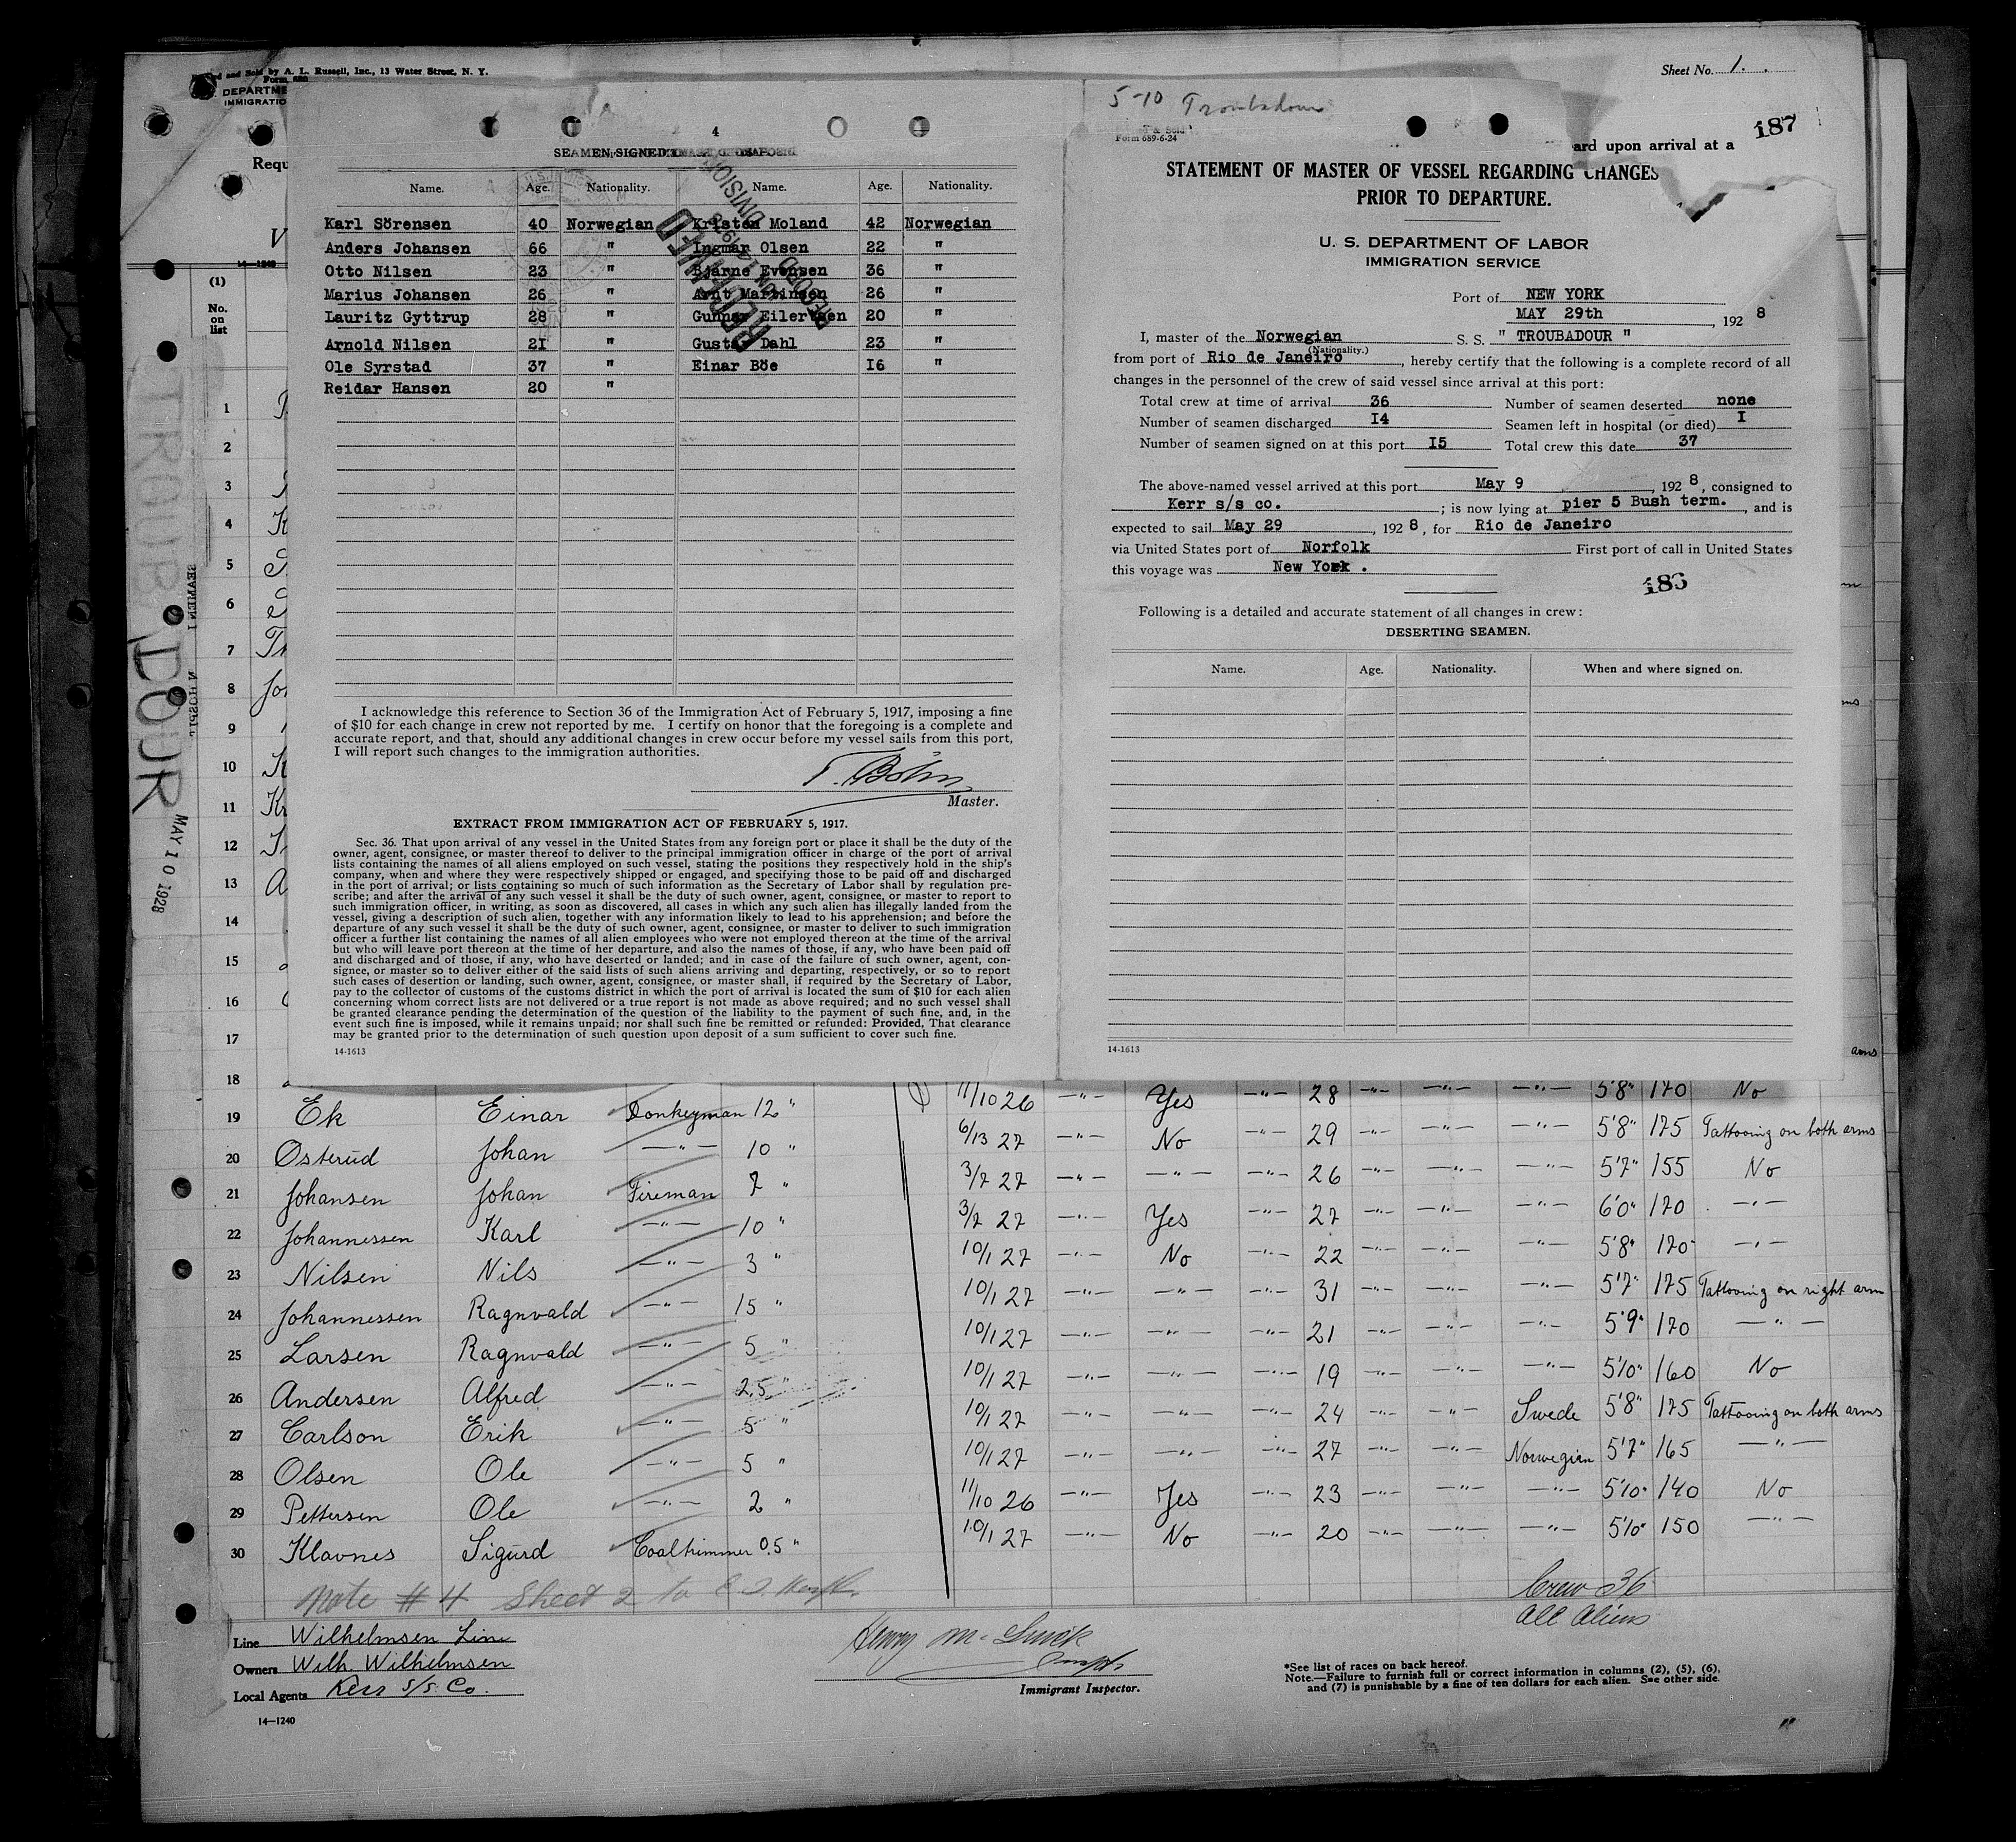 and Sold by A. L. Russell, Inc., 13 Water Street, N. Y.
Sheet No. 1.
DEPARTME
IMMIGRATIO
Requ
V
14-1240
(1)
No.
on
list
1
2
3
4
5
6
7
8
9
10
11
12
13
14
15
16
17
18
TROUBADOUR
MAY 10 1928
4
SEAMEN SIGNED
Name. Age. Nationality. Name. Age. Nationality.
Karl Sörensen 40 Norwegian Kristen Moland 42 Norwegian
Anders Johansen 66 " Ingmar Olsen 22 "
Otto Nilsen 23 " Bjarne Evensen 36 "
Marius Johansen 26 " Arnt Martinsen 26 "
Lauritz Gyttrup 28 " Gunnar Eilertsen 20 "
Arnold Nilsen 21 " Gustav Dahl 23 "
Ole Syrstad 37 " Einar Böe 16 "
Reidar Hansen 20 "
I acknowledge this reference to Section 36 of the Immigration Act of February 5, 1917, imposing a fine
of $10 for each change in crew not reported by me. I certify on honor that the foregoing is a complete and
accurate report, and that, should any additional changes in crew occur before my vessel sails from this port,
I will report such changes to the immigration authorities.
Master.
EXTRACT FROM IMMIGRATION ACT OF FEBRUARY 5, 1917.
Sec. 36. That upon arrival of any vessel in the United States from any foreign port or place it shall be the duty of the
owner, agent, consignee, or master thereof to deliver to the principal immigration officer in charge of the port of arrival
lists containing the names of all aliens employed on such vessel, stating the positions they respectively hold in the ship's
company, when and where they were respectively shipped or engaged, and specifying those to be paid off and discharged
in the port of arrival; or lists containing so much of such information as the Secretary of Labor shall by regulation pre-
scribe; and after the arrival of any such vessel it shall be the duty of such owner, agent, consignee, or master to report to
such immigration officer, in writing, as soon as discovered, all cases in which any such alien has illegally landed from the
vessel, giving a description of such alien, together with any information likely to lead to his apprehension; and before the
departure of any such vessel it shall be the duty of such owner, agent, consignee, or master to deliver to such immigration
officer a further list containing the names of all alien employees who were not employed thereon at the time of the arrival
but who will leave port thereon at the time of her departure, and also the names of those, if any, who have been paid off
and discharged and of those, if any, who have deserted or landed; and in case of the failure of such owner, agent, con-
signee, or master so to deliver either of the said lists of such aliens arriving and departing, respectively, or so to report
such cases of desertion or landing, such owner, agent, consignee, or master shall, if required by the Secretary of Labor,
pay to the collector of customs of the customs district in which the port of arrival is located the sum of $10 for each alien
concerning whom correct lists are not delivered or a true report is not made as above required; and no such vessel shall
be granted clearance pending the determination of the question of the liability to the payment of such fine, and, in the
event such fine is imposed, while it remains unpaid; nor shall such fine be remitted or refunded: Provided, That clearance
may be granted prior to the determination of such question upon deposit of a sum sufficient to cover such fine.
14-1613
5-10 Troubadour
Form 689-6-24
ard upon arrival at a
187
STATEMENT OF MASTER OF VESSEL REGARDING CHANGES
PRIOR TO DEPARTURE.
U. S. DEPARTMENT OF LABOR
IMMIGRATION SERVICE
Port of NEW YORK
MAY 29th, 1928
I, master of the Norwegian S. S. " TROUBADOUR "
(Nationality.)
from port of Rio de Janeiro, hereby certify that the following is a complete record of all
changes in the personnel of the crew of said vessel since arrival at this port:
Total crew at time of arrival 36 Number of seamen deserted none
Number of seamen discharged 14 Seamen left in hospital (or died) 1
Number of seamen signed on at this port 15 Total crew this date 37
The above-named vessel arrived at this port May 9, 1928, consigned to
Kerr s/s co.; is now lying at pier 5 Bush term., and is
expected to sail May 29, 1928, for Rio de Janeiro
via United States port of Norfolk First port of call in United States
this voyage was New York.
186
Following is a detailed and accurate statement of all changes in crew:
DESERTING SEAMEN.
Name. Age. Nationality. When and where signed on.
14-1613
arms
11/10 26 -"- Yes -"- 28 -"- -"- -"- 5'8" 170 No
19 Ek Einar Donkeyman 12 " 6/13 27 -"- No -"- 29 -"- -"- -"- 5'8" 175 Tattooing on both arms
20 Osterud Johan -"- 10 " 3/7 27 -"- -"- -"- 26 -"- -"- -"- 5'7" 155 No
21 Johansen Johan Fireman 7 " 3/7 27 -"- Yes -"- 27 -"- -"- -"- 6'0" 170 -"-
22 Johannessen Karl -"- 10 " 10/1 27 -"- No -"- 22 -"- -"- -"- 5'8" 170 -"-
23 Nilsen Nils -"- 3 " 10/1 27 -"- -"- -"- 31 -"- -"- -"- 5'7" 175 Tattooing on right arm
24 Johannessen Ragnvald -"- 15 " 10/1 27 -"- -"- -"- 21 -"- -"- -"- 5'9" 170 -"-
25 Larsen Ragnvald -"- 5 " 10/1 27 -"- -"- -"- 19 -"- -"- -"- 5'10" 160 No
26 Andersen Alfred -"- 2,5 " 10/1 27 -"- -"- -"- 24 -"- -"- Swede 5'8" 175 Tattooing on both arms
27 Carlson Erik -"- 5 " 10/1 27 -"- -"- -"- 27 -"- -"- Norwegian 5'7" 165 -"-
28 Olsen Ole -"- 5 " 11/10 26 -"- Yes -"- 23 -"- -"- -"- 5'10" 140 No
29 Pettersen Ole -"- 2 " 10/1 27 -"- No -"- 20 -"- -"- -"- 5'10" 150 -"-
30 Klavnes Sigurd Coaltrimmer 0.5 "
Note # 4 Sheet 2 to
Crew 36
All Aliens
Line Wilhelmsen Line
Owners Wilh. Wilhelmsen
Local Agents Kerr S/S. Co.
Immigrant Inspector.
*See list of races on back hereof.
Note.—Failure to furnish full or correct information in columns (2), (5), (6),
and (7) is punishable by a fine of ten dollars for each alien. See other side.
14—1240